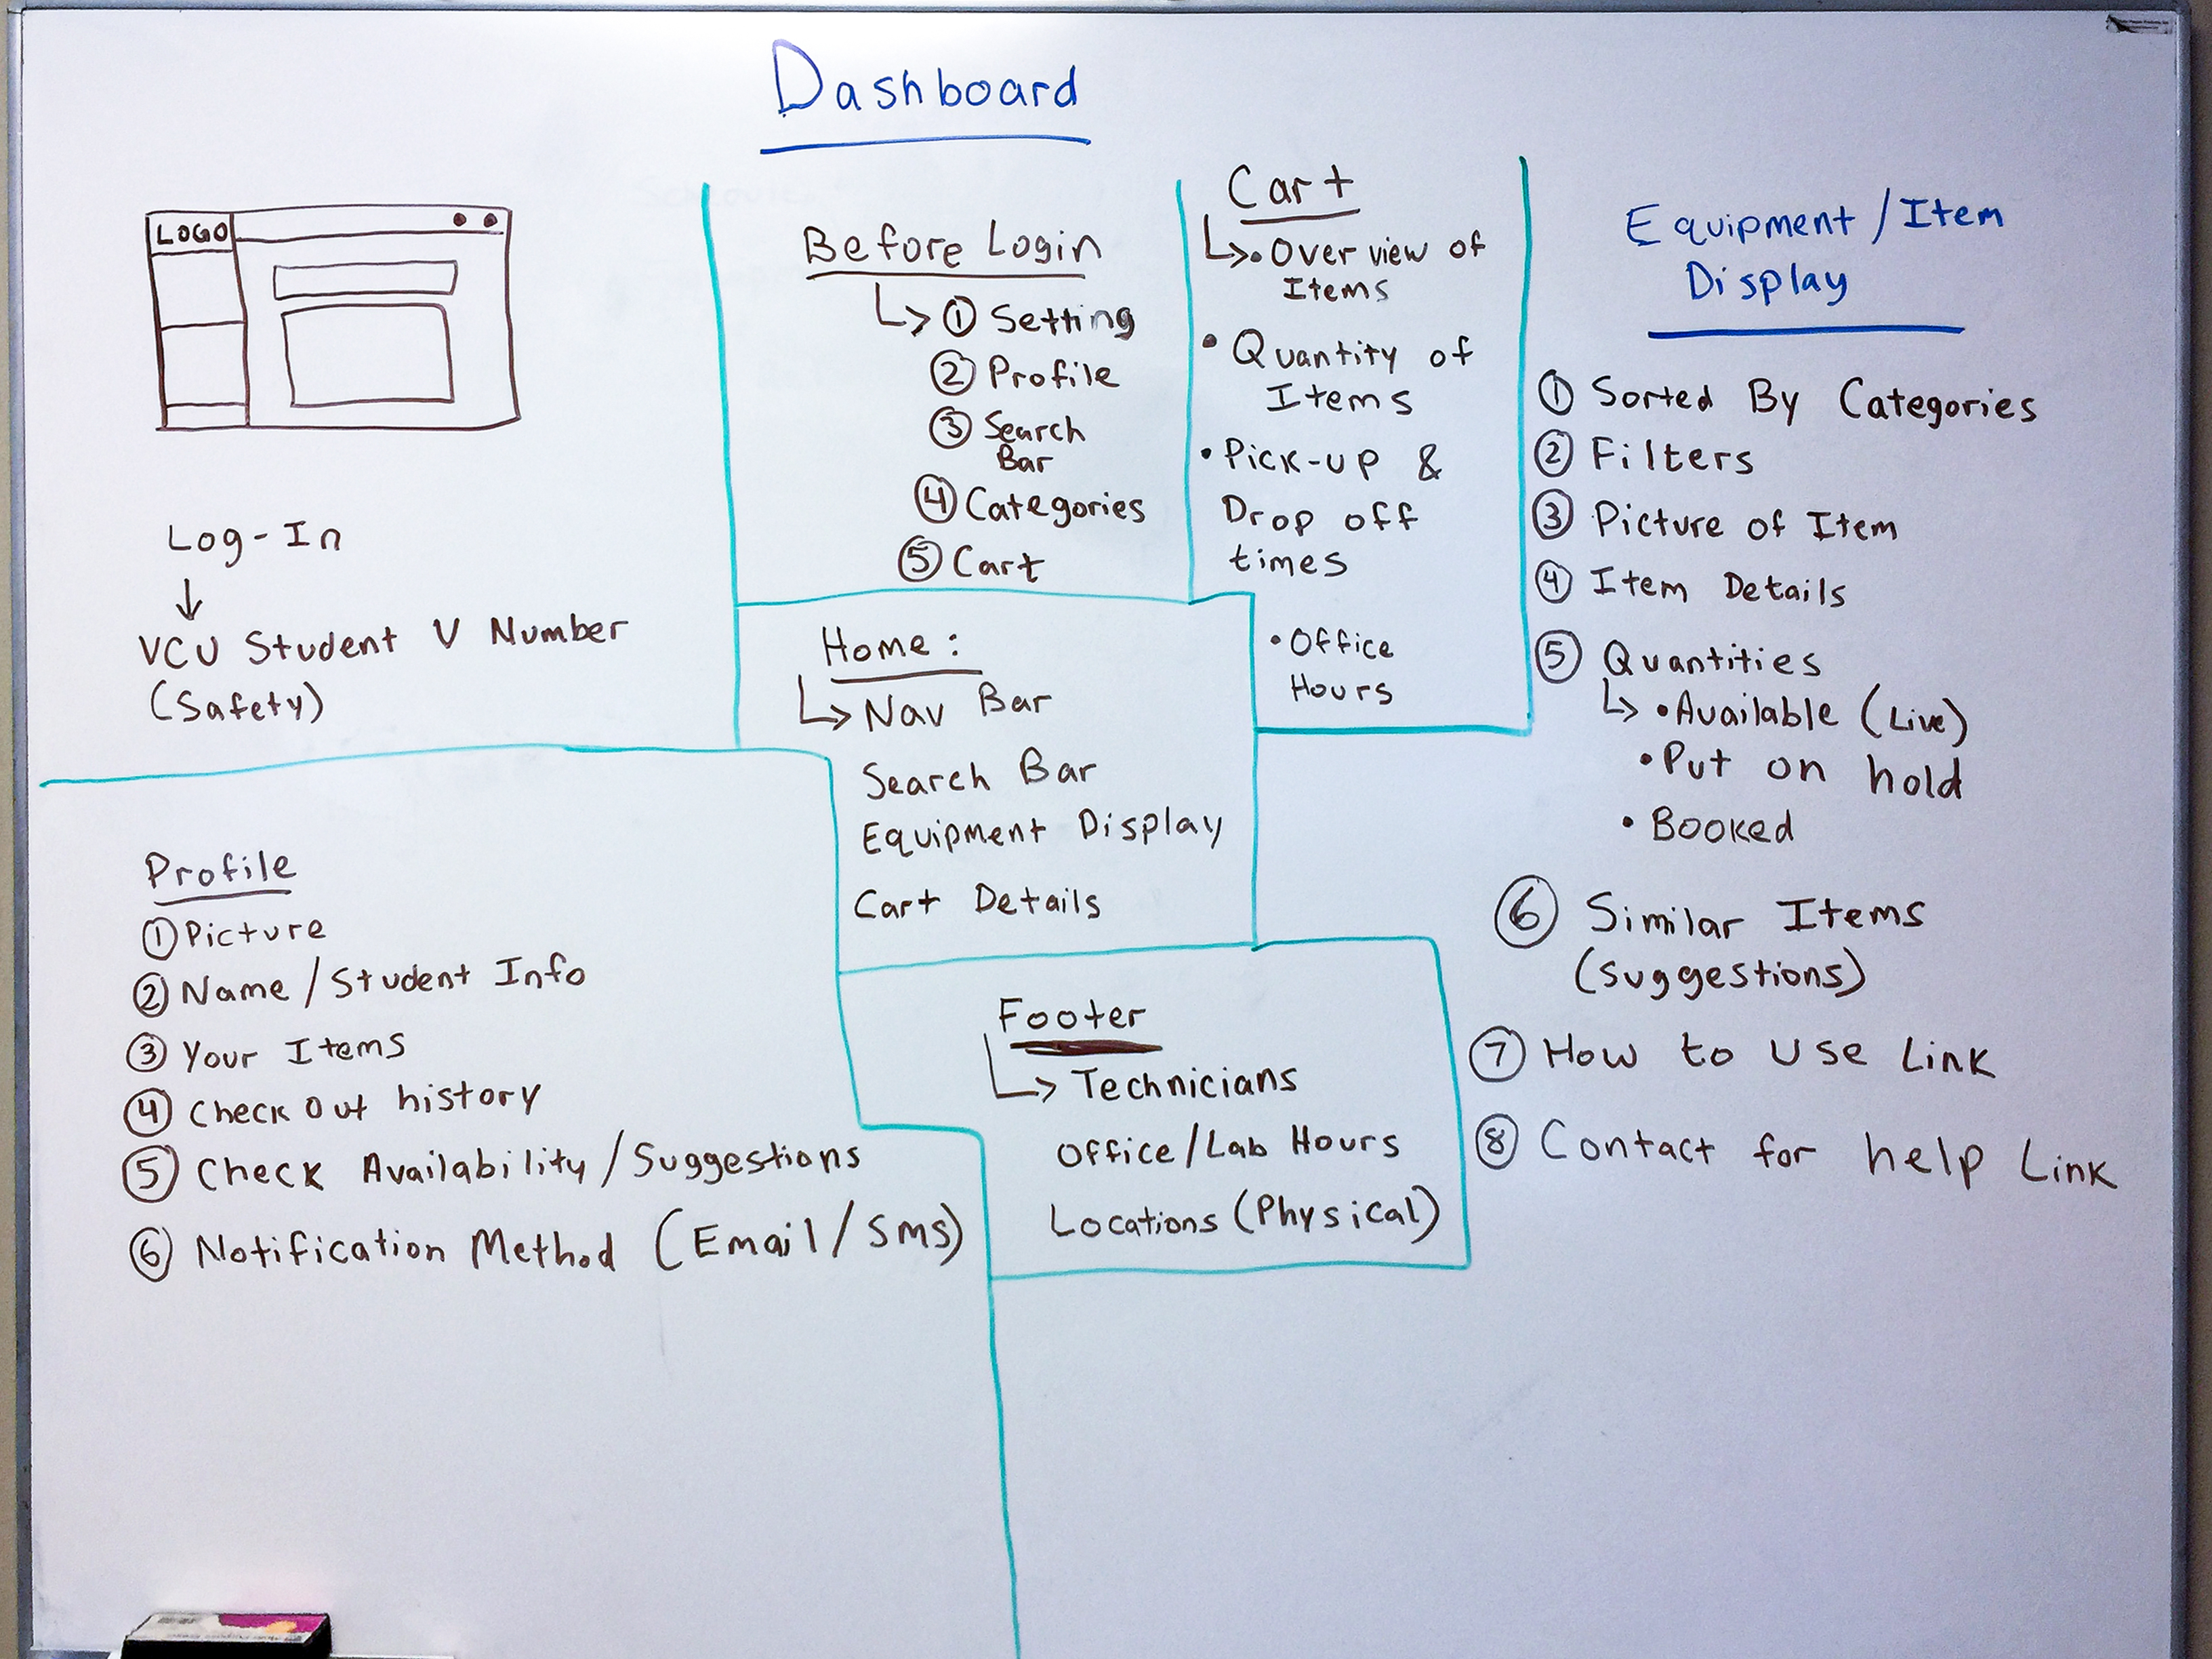 Dashboard
LOGO
Log-In
↓
VCU Student V Number
(Safety)
Before Login
↳ ① Setting
② Profile
③ Search
Bar
④ Categories
⑤ Cart
Cart
↳ • Over view of
Items
• Quantity of
Items
• Pick-up &
Drop off
times
• Office
Hours
Equipment / Item
Display
① Sorted By Categories
② Filters
③ Picture of Item
④ Item Details
⑤ Quantities
↳ • Available (Live)
• Put on hold
• Booked
⑥ Similar Items
(Suggestions)
⑦ How to use Link
⑧ Contact for help Link
Home:
↳ Nav Bar
Search Bar
Equipment Display
Cart Details
Profile
① Picture
② Name / Student Info
③ Your Items
④ Check Out history
⑤ Check Availability / Suggestions
⑥ Notification Method (Email / Sms)
Footer
↳ Technicians
Office / Lab Hours
Locations (Physical)